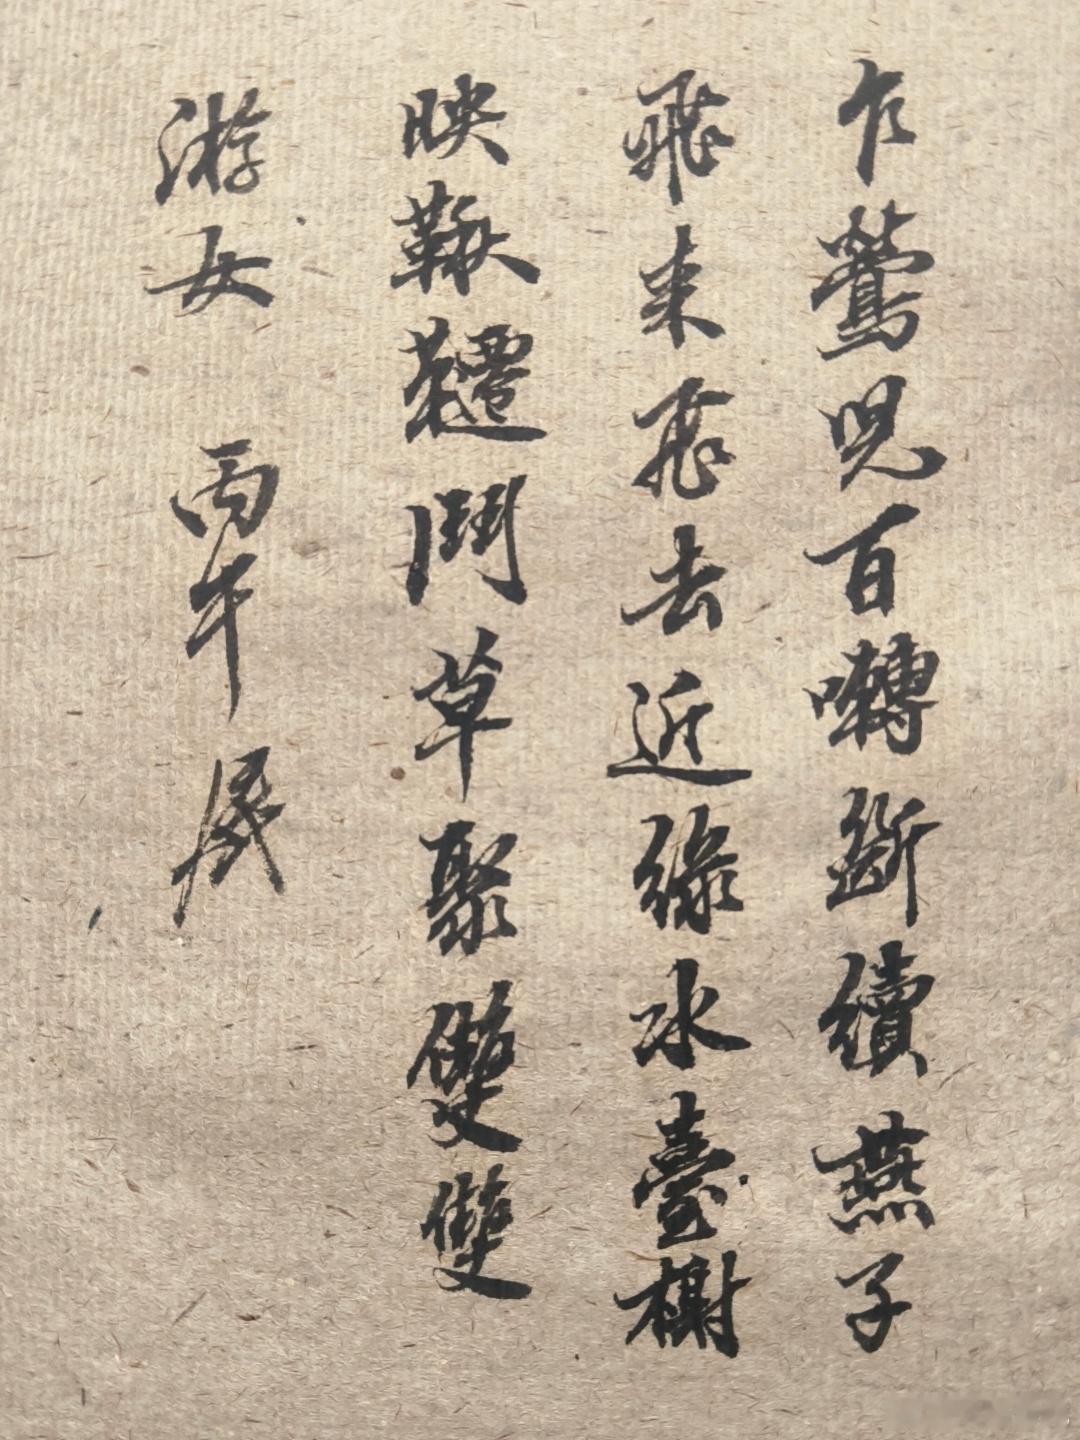 乍鶯兒百囀斷續燕子
飛來飛去近綠水臺榭
映鞦韆鬥草聚雙雙
游女 丙午